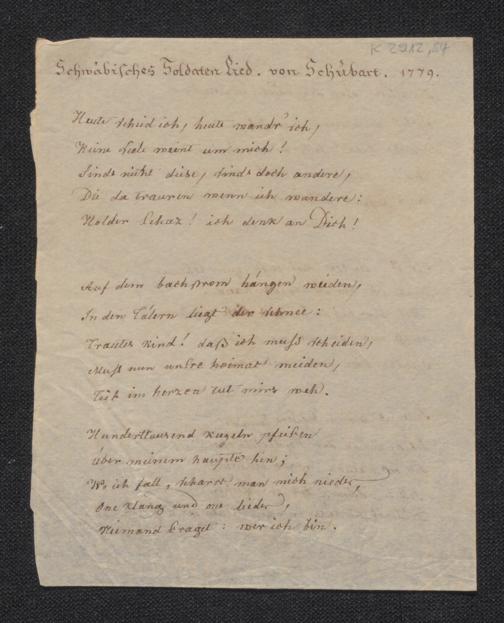 K 2912,54
Schwäbisches Soldaten Lied. von Schubart. 1779.
Heute scheid ich, heute wandr' ich,
Keine Seele weint um mich!
Sinds nicht diese, sinds doch andere,
Die da trauren wenn ich wandere:
Holder Schaz! ich denk an Dich!
Auf dem bachstrom hängen weiden,
In den Tälern liegt der schnee:
Trautes kind! daß ich muß scheiden,
Muß nun unsre heimat meiden,
Tief im herzen tut mirs weh.
Hunderttausend kugeln pfeifen
über meinem haupte hin;
Wo ich fall, scharrt man mich nieder,
One klang und one lieder,
Niemand fraget: wer ich bin.